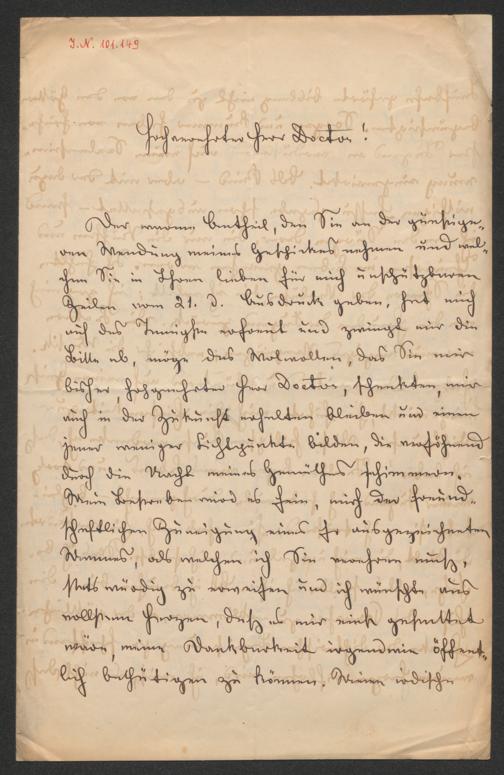 I. N. 101.149
Hochverehrter Herr Doctor!
Der warme Antheil, den Sie an der günstige-
ren Wendung meines Geschickes nehmen und wel-
chem Sie in Ihren lieben für mich unschätzbaren
Zeilen vom 21. d. Ausdruck geben, hat mich
auf das Innigste erfreut und zwingt mir die
Bitte ab, möge das Wolwollen, das Sie mir
bisher, hochgeehrter Herr Doctor, schenkten, mir
auch in der Zukunft erhalten bleiben und einen
jener wenigen Lichtpunkte bilden, die versöhnend
durch die Nacht meines Gemüthes schimmern.
Mein Bestreben wird es sein, mich der freund-
schaftlichen Zuneigung eines so ausgezeichneten
Mannes, als welchen ich Sie verehren muß,
stets würdig zu erweisen und ich wünschte aus
vollstem Herzen, daß es mir einst gestattet
wäre, meine Dankbarkeit irgendwie öffent-
lich bethätigen zu können. Meine irdische